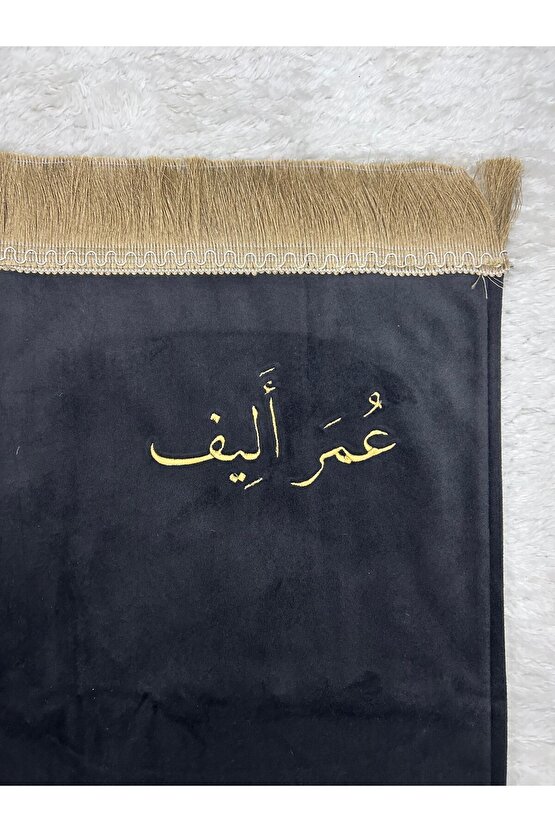 عُمَرَ أَلِيف